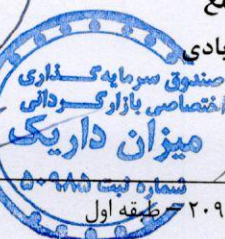 بادی
صندوق سرمایه‌گذاری
اختصاصی بازارگردانی
میزان داریک
شماره ثبت ۵۰۹۸۵
۲۰۹ - طبقه اول